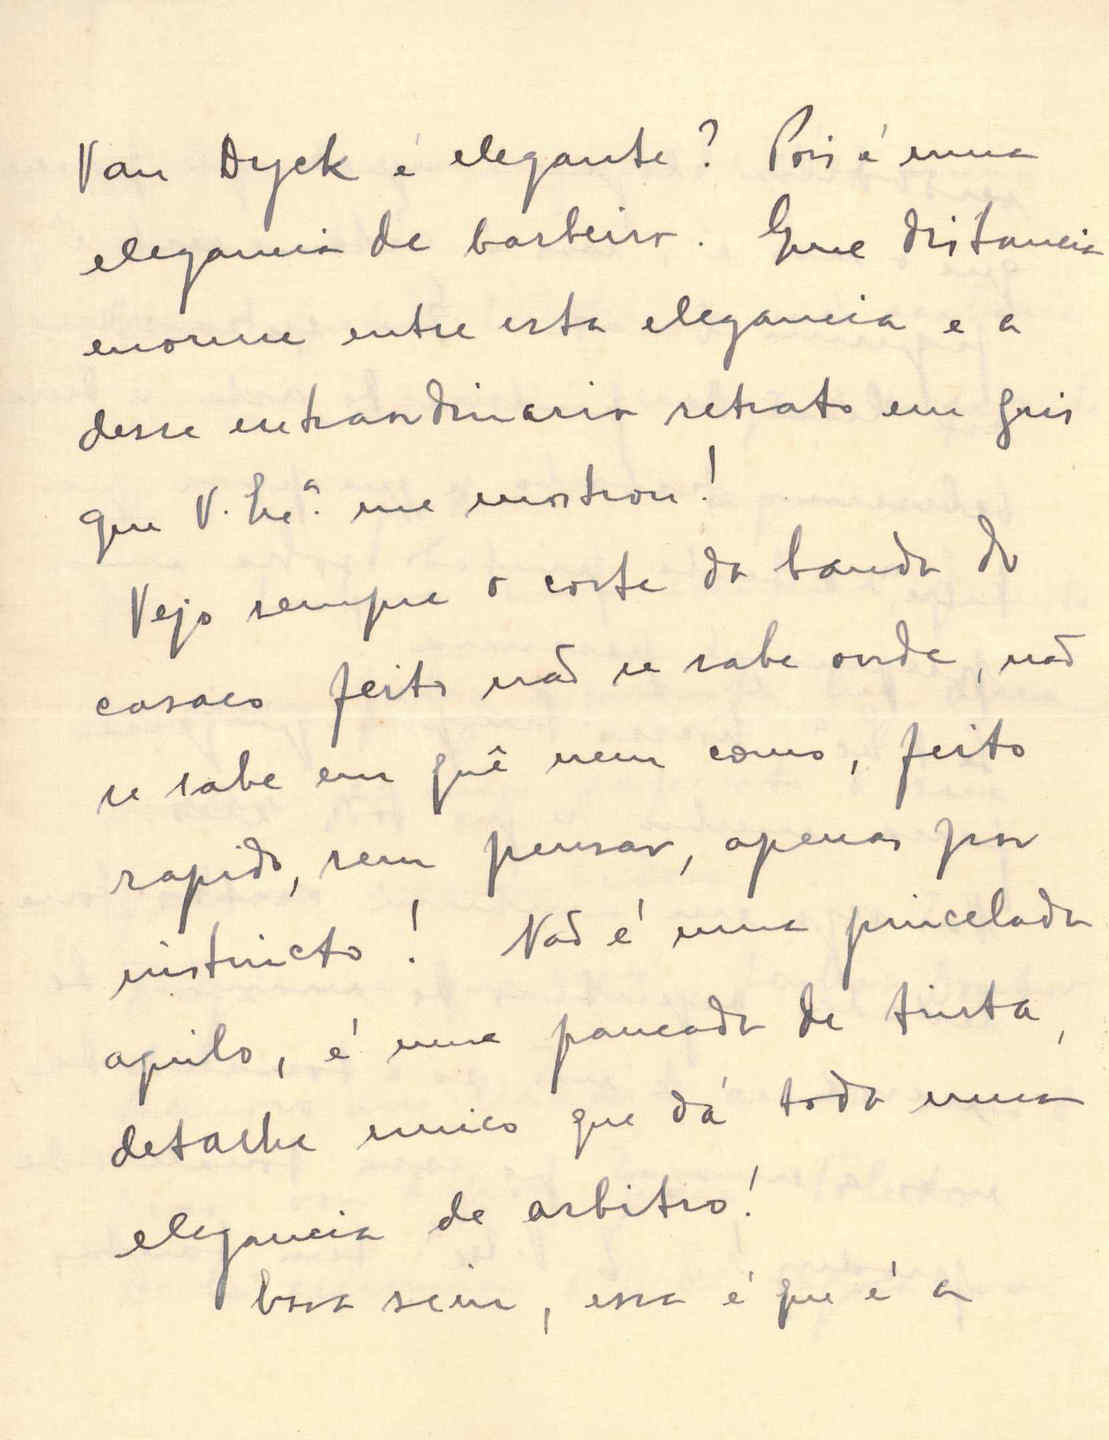 Van Dyck é elegante? Pois é uma
elegancia de barbeiro. Que distancia
enorme entre esta elegancia e a
desse extraordinario retrato em gris
que V. Exª. me mostrou!
Vejo sempre o corte da banda do
casaco feito não se sabe onde, não
se sabe em quê nem como, feito
rapido, sem pensar, apenas por
instincto! Não é uma pincelada
aquilo, é uma pancada de tinta,
detache unico que dá toda uma
elegancia de arbitro!
Essa sim, essa é que é a